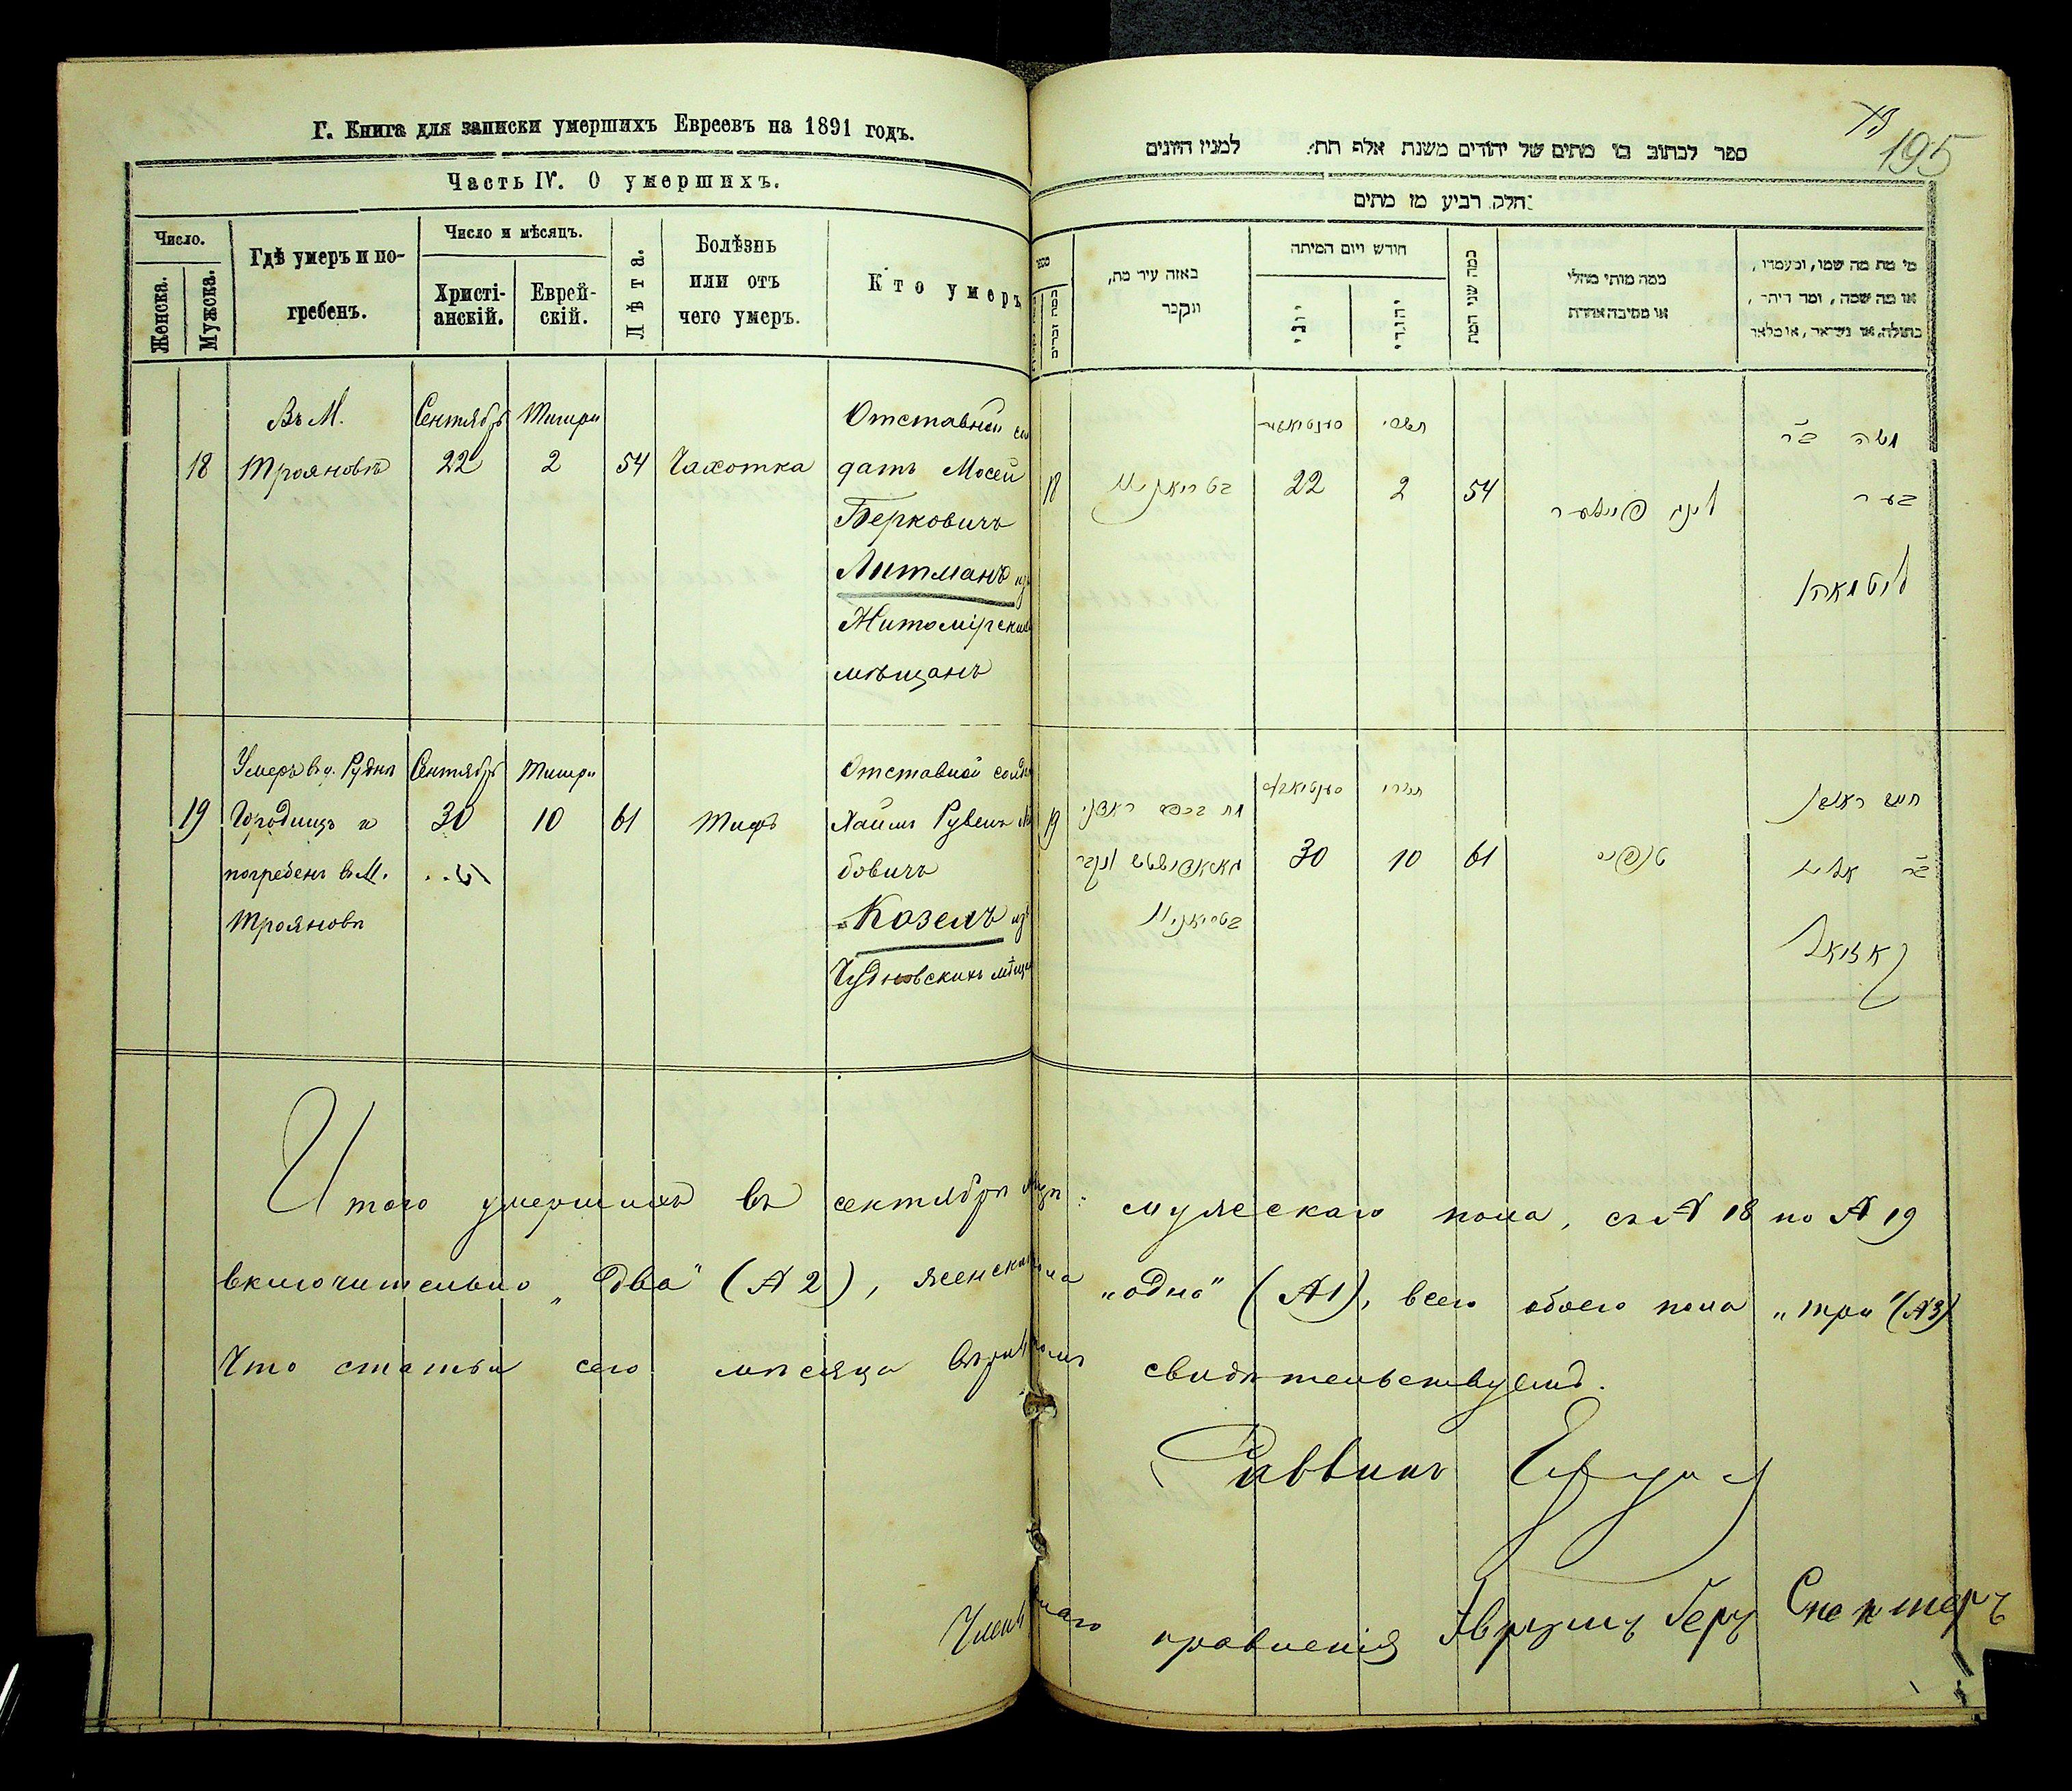 Г. Книга для записки умершихъ Евреевъ на 1891 годъ.
Часть IV. О умершихъ.
Число.
Женска.
Мужска.
Гдѣ умеръ и по-
гребенъ.
Число и мѣсяцъ.
Христі-
анскій.
Еврей-
скій.
Лѣта.
Болѣзнь
или отъ
чего умеръ.
Кто умеръ
18
Въ М.
Трояновѣ
Сентябрь
22
Тишри
2
54
Чахотка
Отставной сол
датъ Мосей
Берковичъ
Литманъ изъ
Житомірскихъ
мѣщанъ
19
Умеръ въ д. Руднѣ
Городищѣ и
погребенъ въ М.
Трояновѣ
Сентябрь
30
Тишри
10
61
Тифъ
Отставной солда
Хаимъ Рувенъ
бовичъ
Козелъ изъ
Чудновскихъ мѣщан
195
ספר לכתוב בו מתים של יהודים משנת אלף תת׳ למנין היונים
חלק רביע מן מתים
מספר
באזה עיר מת,
ונקבר
חודש ויום המיתה
יוני
יהודי
כמה שני המת
ממה מותי מחלי
או מסיבה אחרת
מי מת מה שמו, ומעמדו,
או מה שמה, ומה דיתה,
בתולה, או נשואה, או מלאר
18
22
תשרי
2
54
משה ב״ר
בער
ליטמאן
19
30
תשרי
10
61
חיים ראובן
ב״ר
קאזיאל
Итого умершихъ въ сентябрѣ мцѣ: мужескаго пола, съ № 18 по № 19
включительно „два" (№ 2), женскаго пола „одна" (№ 1), всего обоего пола „три" (№ 3)
Что статьи сего мѣсяца вѣрны въ томъ свидѣтельствуемъ.
Раввинъ
Членъ правленія Аврумъ Герш Спекторъ